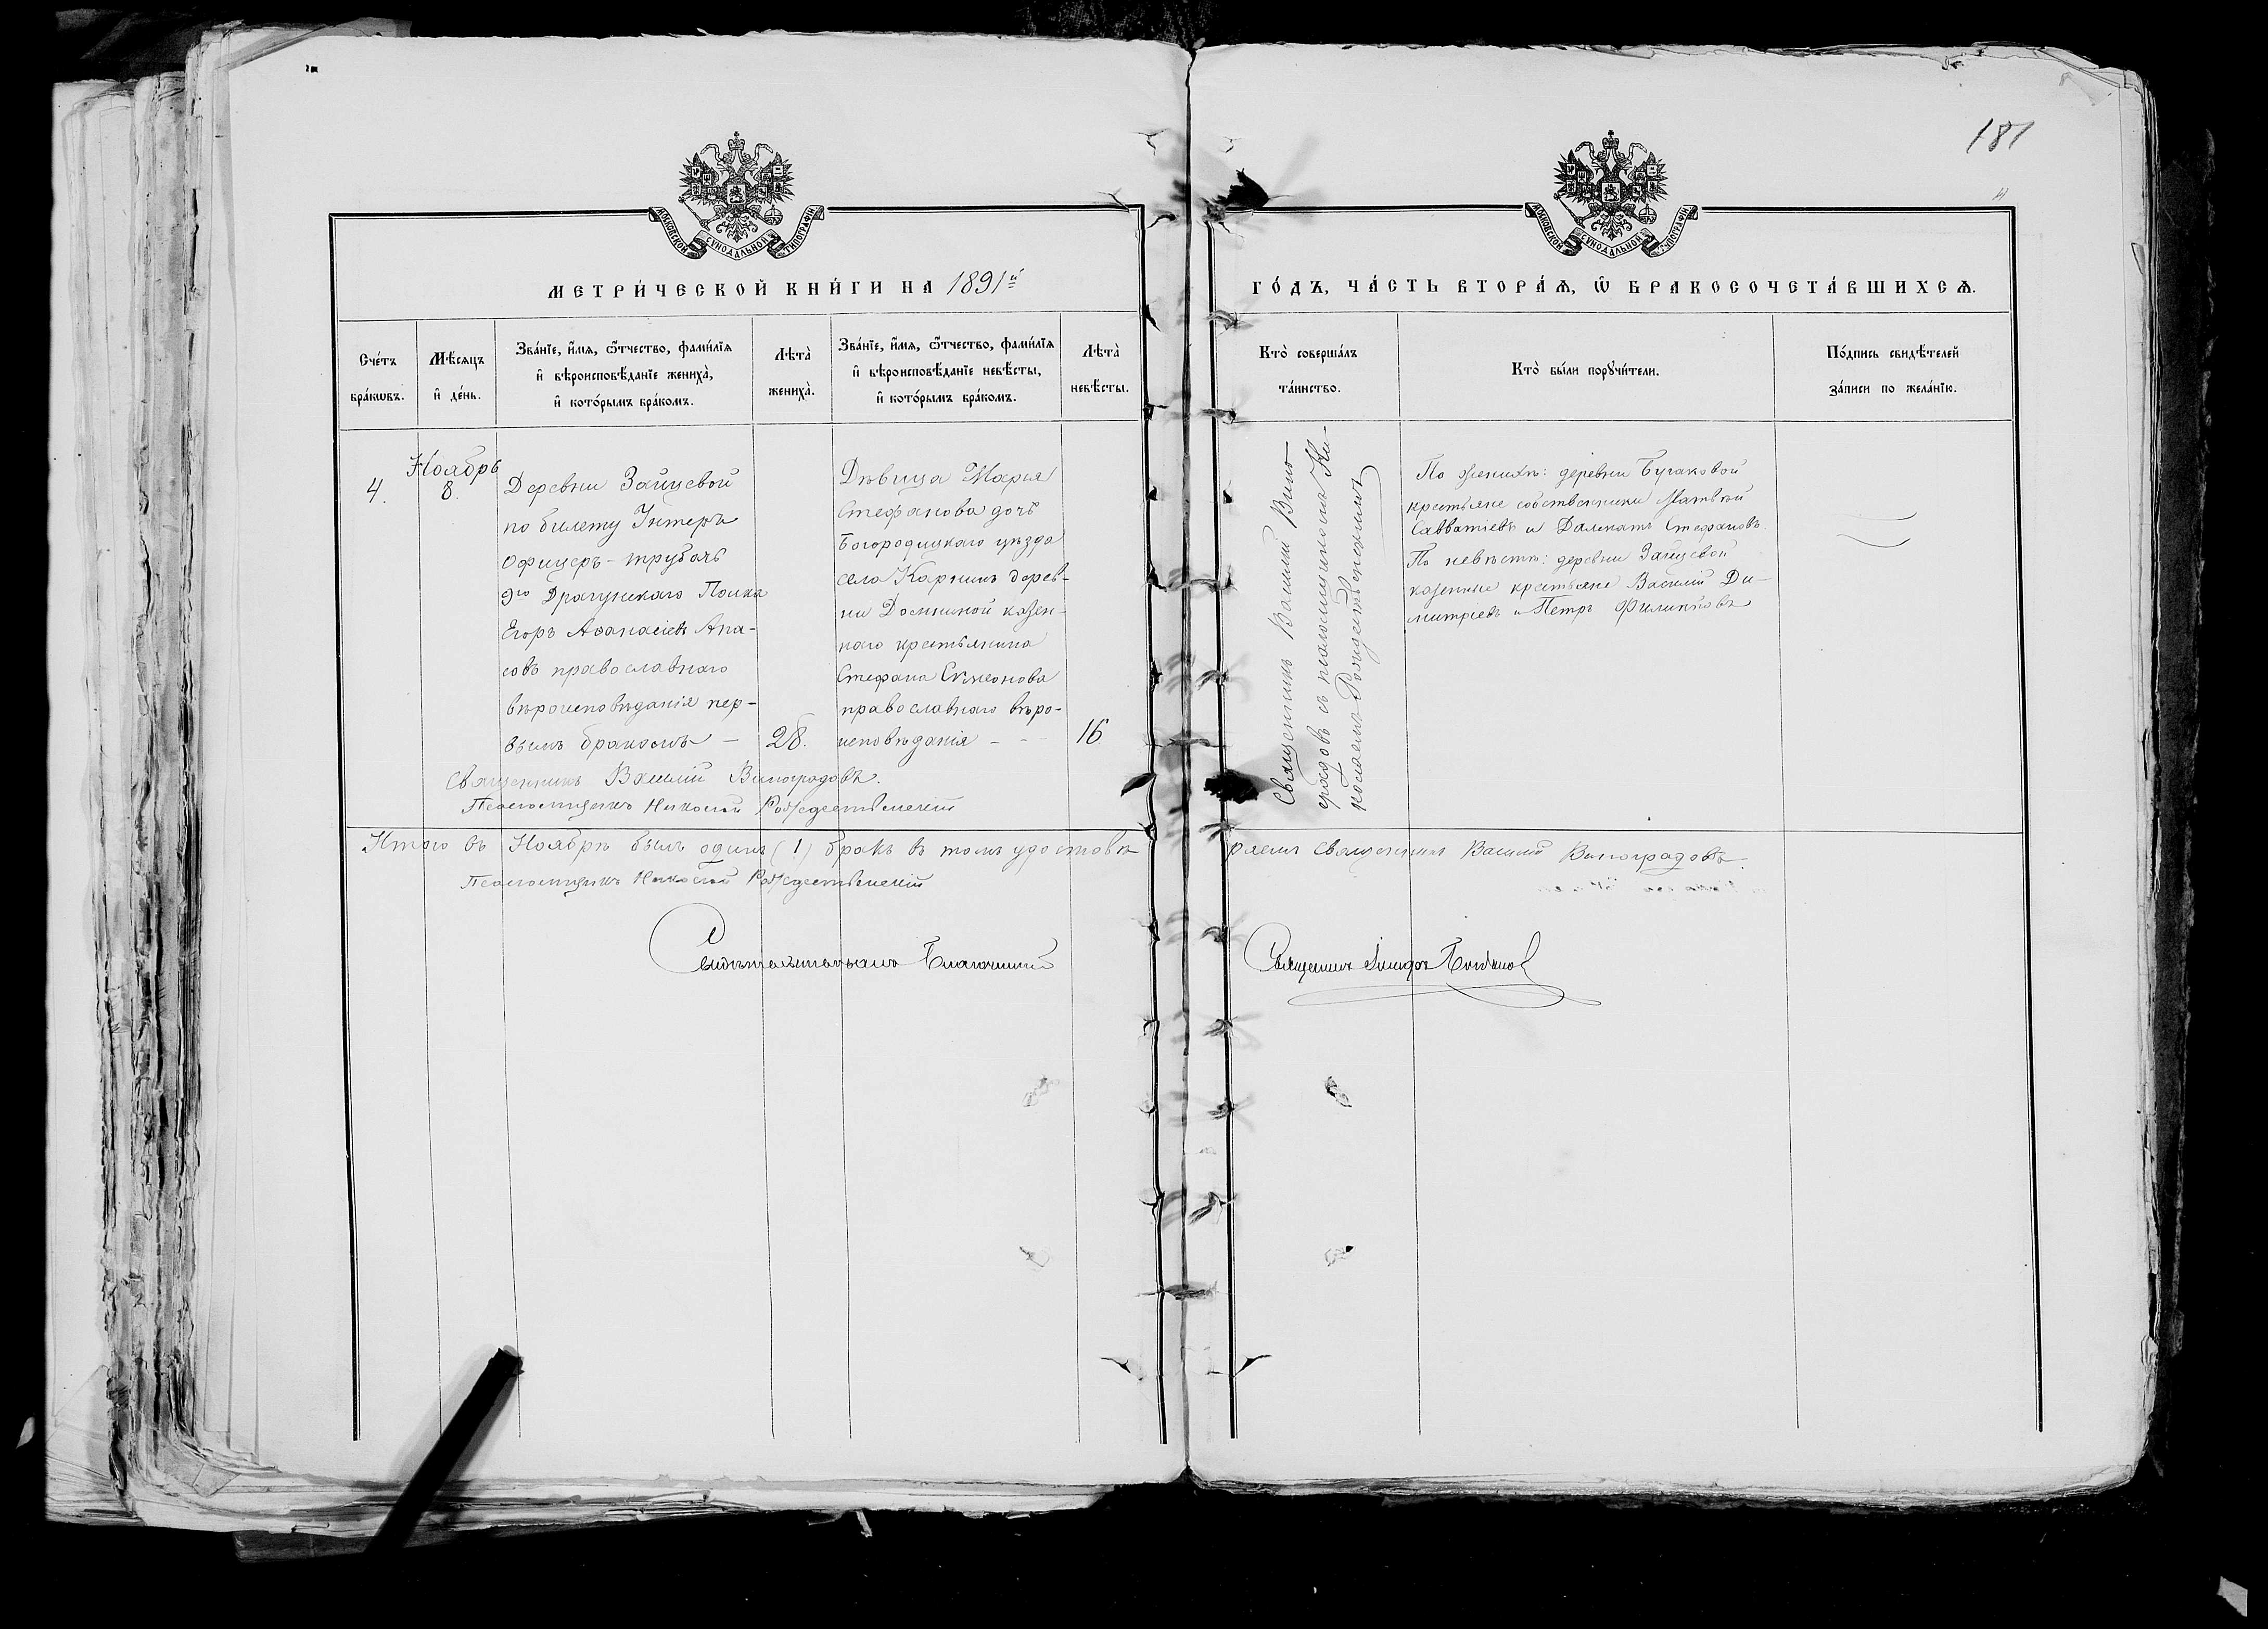 181
МОСКОВСКОЙ СѴНОДАЛЬНОЙ ТИПОГРАФІИ
МОСКОВСКОЙ СѴНОДАЛЬНОЙ ТИПОГРАФІИ
МЕТРИ́ЧЕСКОЙ КНИ́ГИ НА 1891й
ГО́ДЪ, ЧА́СТЬ ВТОРА́Ѧ, Ѽ БРАКОСОЧЕТА́ВШИХСѦ.
Сче́тъ
бра́кѡвъ.
Мѣ́сяцъ
и҆ де́нь.
Зва́нїе, и҆́мя, ѻ҆́тчество, фами́лїя
и҆ вѣроисповѣ́данїе жениха̀,
и҆ кото́рымъ бра́комъ.
Лѣта̀
жениха̀.
Зва́нїе, и҆́мя, ѻ҆́тчество, фами́лїя
и҆ вѣроисповѣ́данїе невѣ́сты,
и҆ кото́рымъ бра́комъ.
Лѣта̀
невѣ́сты.
Кто̀ соверша́лъ
та́инство.
Кто̀ бы́ли порꙋчи́тели.
По́дпись свидѣ́телей
за́писи по жела́нїю.
4.
Ноябрь
8.
Деревни Зайцевой
по билету Унтеръ
Офицеръ-трубачъ
9го Драгунскаго Полка
Егоръ Аѳанасіевъ Апа-
совъ православнаго
вѣроисповѣданія пер-
вымъ бракомъ –
28.
Дѣвица Марья
Стефанова дочь
Богородицкаго уѣзда
села Карнинъ дерев-
ни Доминой казен-
наго крестьянина
Стефана Сѵмеонова
православнаго вѣро-
исповѣданія – –
16
Священникъ Василій Вино-
градовъ съ псаломщикомъ Ни-
колаемъ Рождественскимъ
По женихѣ: деревни Бугаковой
крестьяне собственники Матвѣй
Савватіевъ и Далматъ Стефановъ.
По невѣстѣ: деревни Зайцевой
казенные крестьяне Василій Ди-
митріевъ и Петръ Филипповъ
Священникъ Василій Виноградовъ.
Псаломщикъ Николай Рождественскій
Итого въ Ноябрѣ былъ одинъ (1) бракъ въ томъ удостовѣ
ряемъ Священникъ Василій Виноградовъ
Псаломщикъ Николай Рождественскій
Свидѣтельствовалъ Благочинный
Священникъ